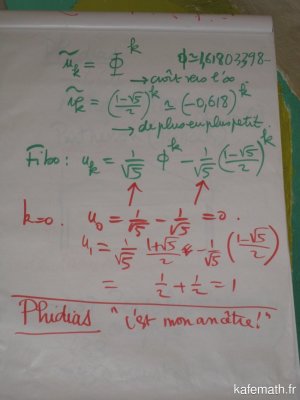 ũₖ = Φᵏ   Φ ≃ 1,61803398-
→ croît vers l'∞
ṽₖ = ((1-√5)/2)ᵏ ≃ (-0,618)ᵏ
→ de plus en plus petit.
Fibo : uₖ = 1/√5 Φᵏ - 1/√5 ((1-√5)/2)ᵏ
k=0. u₀ = 1/√5 - 1/√5 = 0.
u₁ = 1/√5 (1+√5)/2 - 1/√5 ((1-√5)/2)
= 1/2 + 1/2 = 1
Phidias "c'est mon ancêtre!"
kafemath.fr